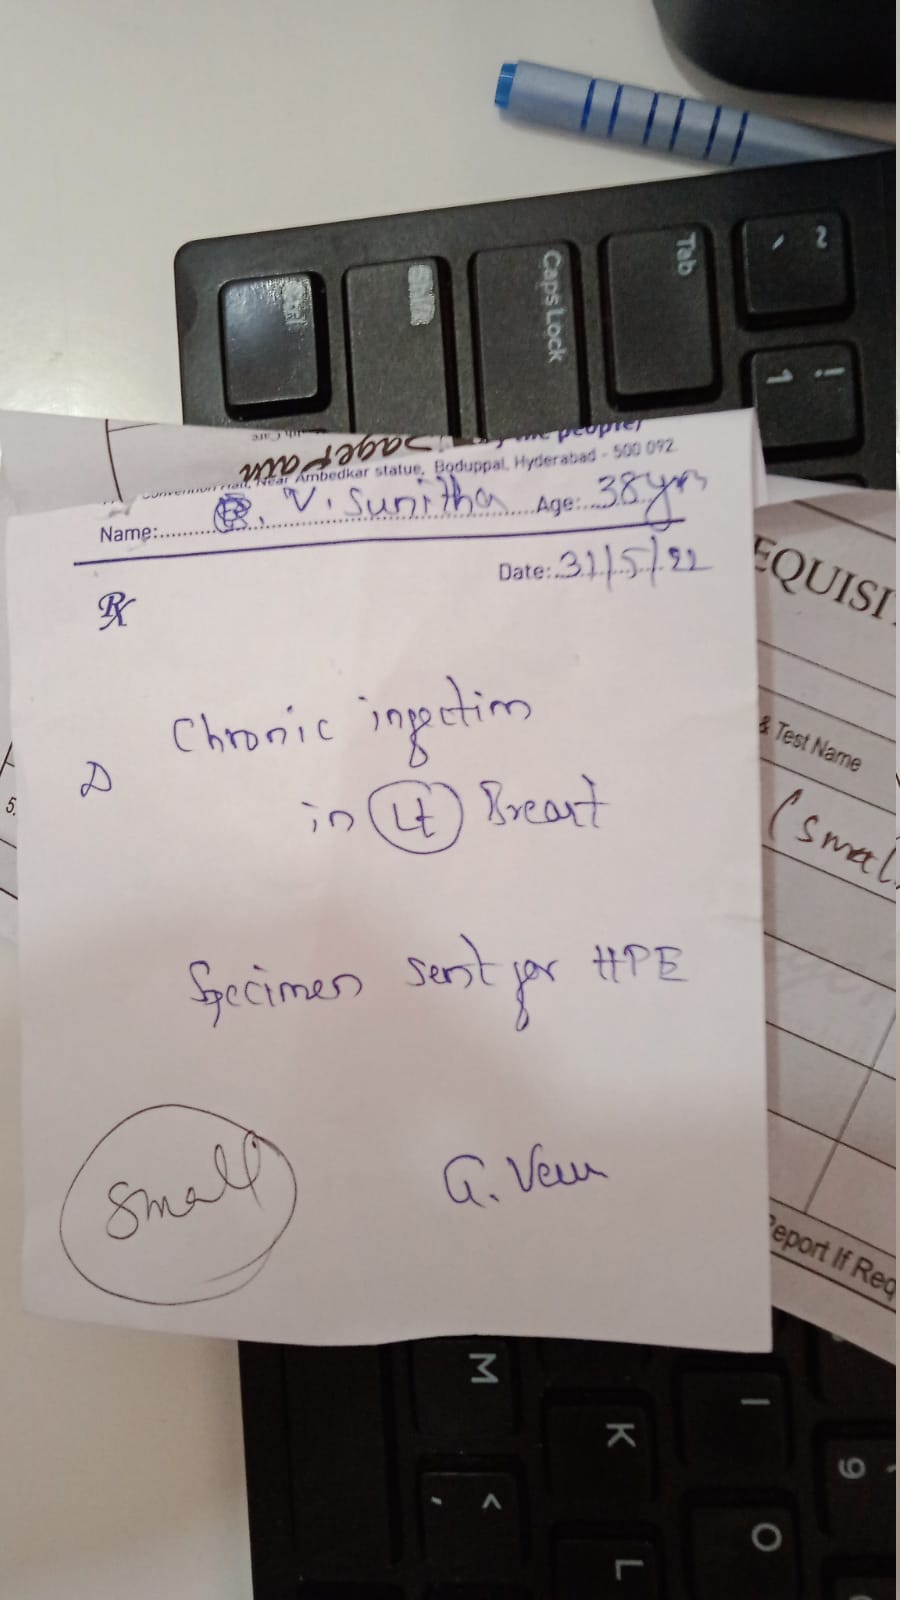 people)
Near Ambedkar statue, Boduppal, Hyderabad - 500 092
Name: V. Sunitha Age: 38yrs
Date: 31/5/22
Rx
Chronic infection
in Lt Breast
Specimen sent for HPE
Small
G.
EQUISI
& Test Name
(smal
Report If Req
5.
~
`
!
1
Tab
Caps Lock
Shift
Ctrl
M
K
I
9
<
,
L
O